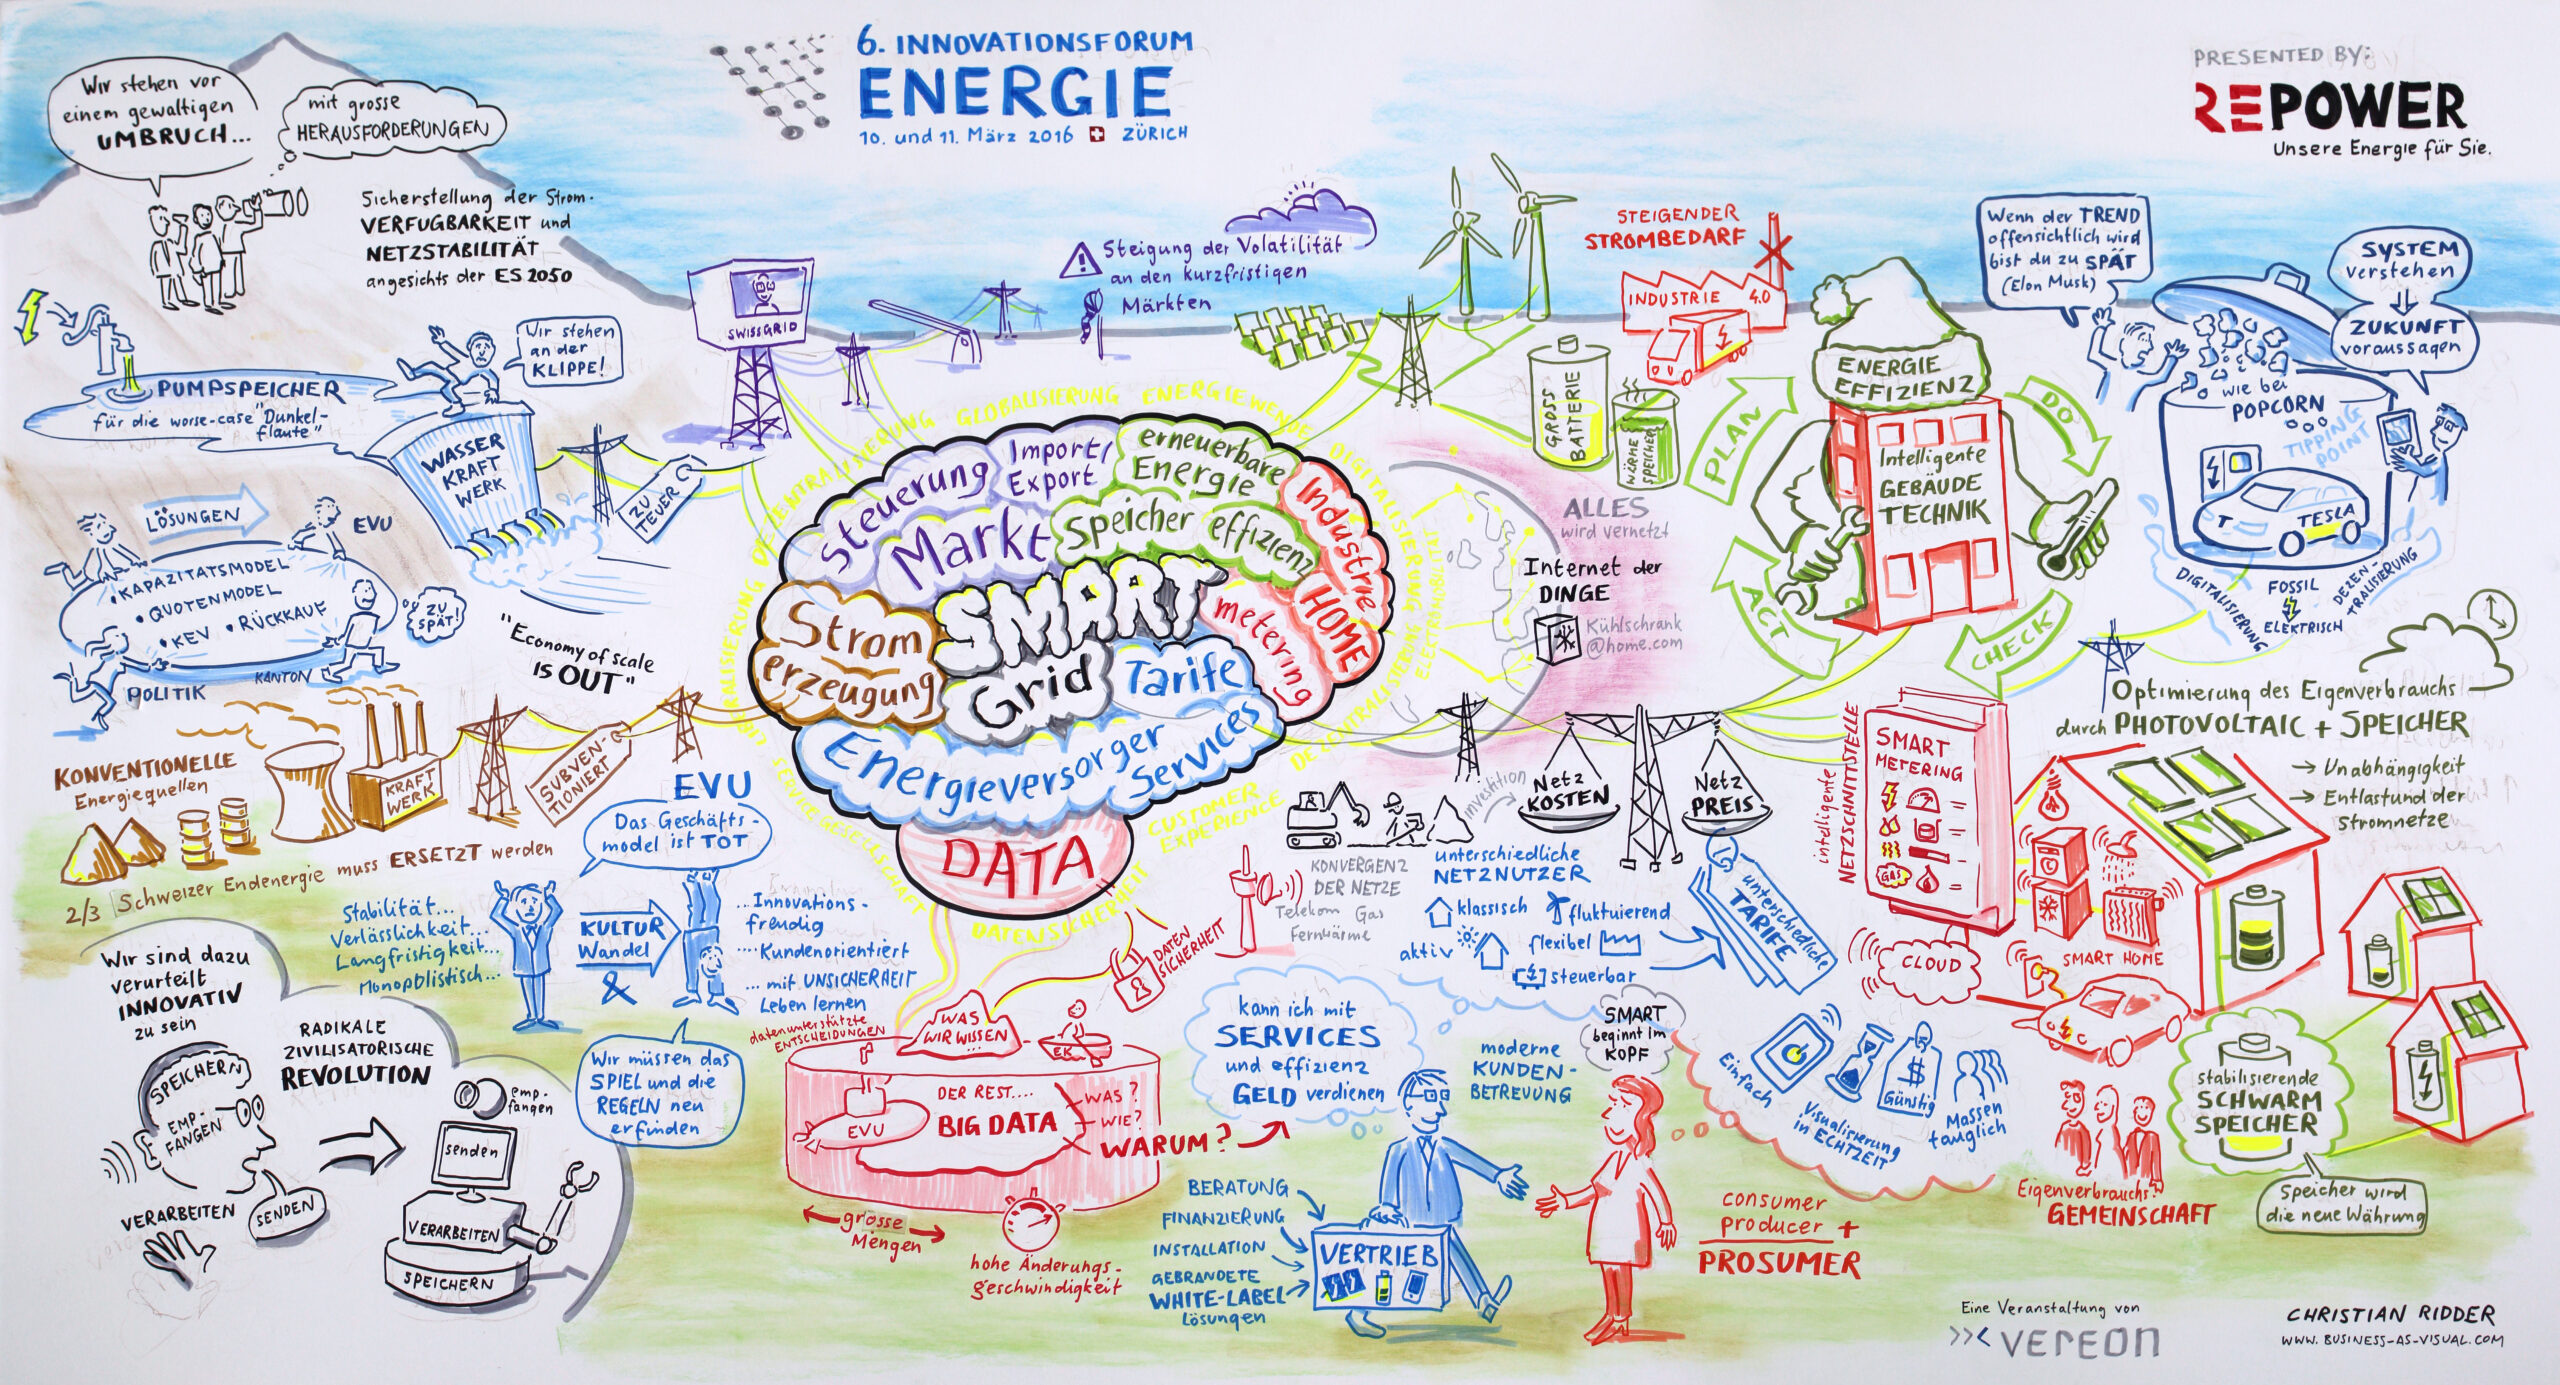 6. INNOVATIONSFORUM
ENERGIE
10. und 11. März 2016 ZÜRICH
PRESENTED BY:
REPOWER
Unsere Energie für Sie.
Wir stehen vor
einem gewaltigen
UMBRUCH...
mit grosse
HERAUSFORDERUNGEN
Sicherstellung der Strom-
VERFUGBARKEIT und
NETZSTABILITÄT
angesichts der ES 2050
PUMPSPEICHER
für die worse-case "Dunkel-
flaute"
Wir stehen
an der
KLIPPE!
WASSER
KRAFT
WERK
ZU
TEUER
LÖSUNGEN
EVU
• KAPAZITATSMODEL
• QUOTENMODEL
• KEV • RÜCKKAUF
ZU
SPÄT!
POLITIK
KANTON
"Economy of scale
IS OUT"
SWISSGRID
Steigung der Volatilität
an den kurzfristigen
Märkten
STEIGENDER
STROMBEDARF
INDUSTRIE 4.0
GROSS
BATTERIE
WÄRME
SPEICHER
ENERGIE
EFFIZIENZ
Intelligente
GEBÄUDE
TECHNIK
PLAN
DO
CHECK
ACT
Wenn der TREND
offensichtlich wird
bist du zu SPÄT
(Elon Musk)
SYSTEM
verstehen
ZUKUNFT
voraussagen
wie bei
POPCORN
TIPPING
POINT
T TESLA
DIGITALISIERUNG
FOSSIL
ELEKTRISCH
DEZEN-
TRALISIERUNG
DEZENTRALISIERUNG GLOBALISIERUNG ENERGIEWENDE DIGITALISIERUNG
ELEKTROMOBILITÄT
DEZENTRALISIERUNG
CUSTOMER
EXPERIENCE
DATENSICHERHEIT
SERVICE GESELLSCHAFT
Steuerung
Import/
Export
Markt
erneuerbare
Energie
Speicher effizienz
Industrie
HOME
metering
SMART
Grid
Strom
erzeugung
Tarife
Energieversorger
Services
DATA
ALLES
wird vernetzt
Internet der
DINGE
Kühlschrank
@home.com
KONVENTIONELLE
Energiequellen
KRAFT
WERK
SUBVEN-
TIONIERT
2/3 Schweizer Endenergie muss ERSETZT werden
EVU
Das Geschäfts-
model ist TOT
Stabilität...
Verlässlichkeit...
Langfristigkeit...
Monoplistisch...
KULTUR
Wandel
&
... Innovations-
freudig
.... Kundenorientiert
... mit UNSICHERHEIT
Leben lernen
Wir müssen das
SPIEL und die
REGELN neu
erfinden
Wir sind dazu
verurteilt
INNOVATIV
zu sein
RADIKALE
ZIVILISATORISCHE
REVOLUTION
SPEICHERN
EMP-
FANGEN
VERARBEITEN
SENDEN
emp-
fangen
senden
VERARBEITEN
SPEICHERN
datenunterstützte
ENTSCHEIDUNGEN
WAS
WIR WISSEN
EK
DATEN
SICHERHEIT
EVU
DER REST....
BIG DATA
WAS?
WIE?
WARUM?
grosse
Mengen
hohe Änderungs-
geschwindigkeit
Investition
Netz
KOSTEN
Netz
PREIS
KONVERGENZ
DER NETZE
Telekom Gas
Fernwärme
unterschiedliche
NETZNUTZER
klassisch
fluktuierend
aktiv
flexibel
steuerbar
unterschiedliche
TARIFE
kann ich mit
SERVICES
und effizienz
GELD verdienen
moderne
KUNDEN-
BETREUUNG
SMART
beginnt im
KOPF
BERATUNG
FINANZIERUNG
INSTALLATION
GEBRANDETE
WHITE-LABEL
Lösungen
VERTRIEB
consumer
producer +
PROSUMER
Einfach
Visualisierung
in ECHTZEIT
$
Günstig
Massen
tauglich
intelligente
NETZSCHNITTSTELLE
SMART
METERING
GAS
CLOUD
SMART HOME
Optimierung des Eigenverbrauchs
durch PHOTOVOLTAIC + SPEICHER
→ Unabhängigkeit
→ Entlastund der
Stromnetze
Eigenverbrauchs-
GEMEINSCHAFT
stabilisierende
SCHWARM
SPEICHER
Speicher wird
die neue Währung
Eine Veranstaltung von
vereon
CHRISTIAN RIDDER
WWW.BUSINESS-AS-VISUAL.COM